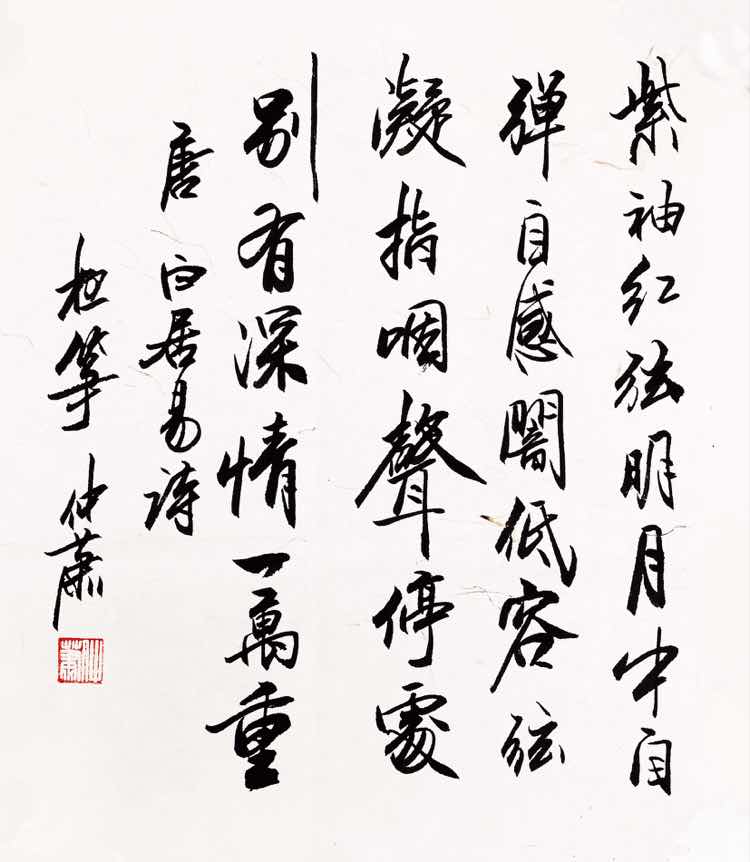 紫袖红弦明月中自
弹自感闇低容弦
凝指咽聲停處
别有深情一萬重
唐 白居易诗
夜筝 仲蕭